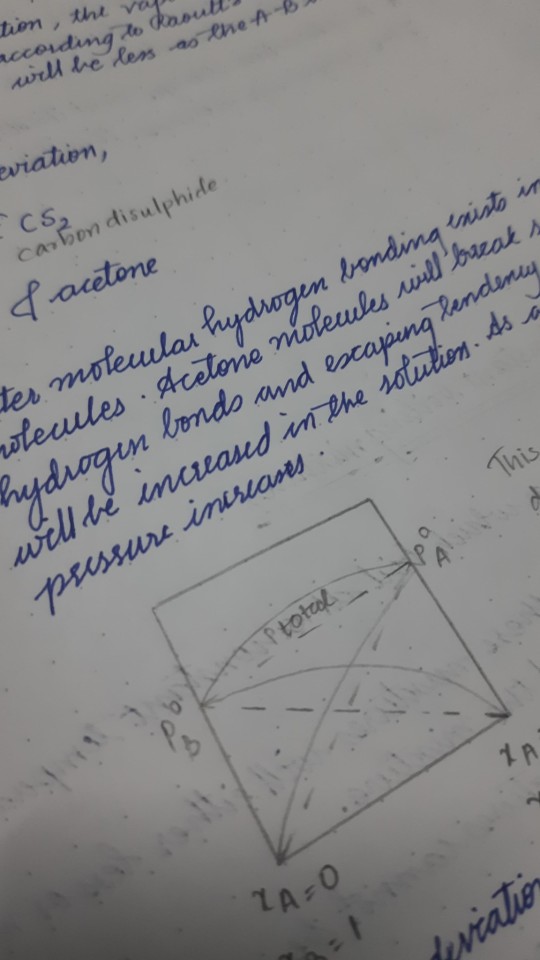 tion, the
according to Raoult's
will be less as the A-B
eviation,
CS₂
carbon disulphide
& acetone
ter molecular hydrogen bonding exists in
molecules. Acetone molecules will break
hydrogen bonds and escaping tendency
will be increased in the solution. As a
pressure increases.
This
P°A
Ptotal
P°B
xA
xA=0
=1
deviation